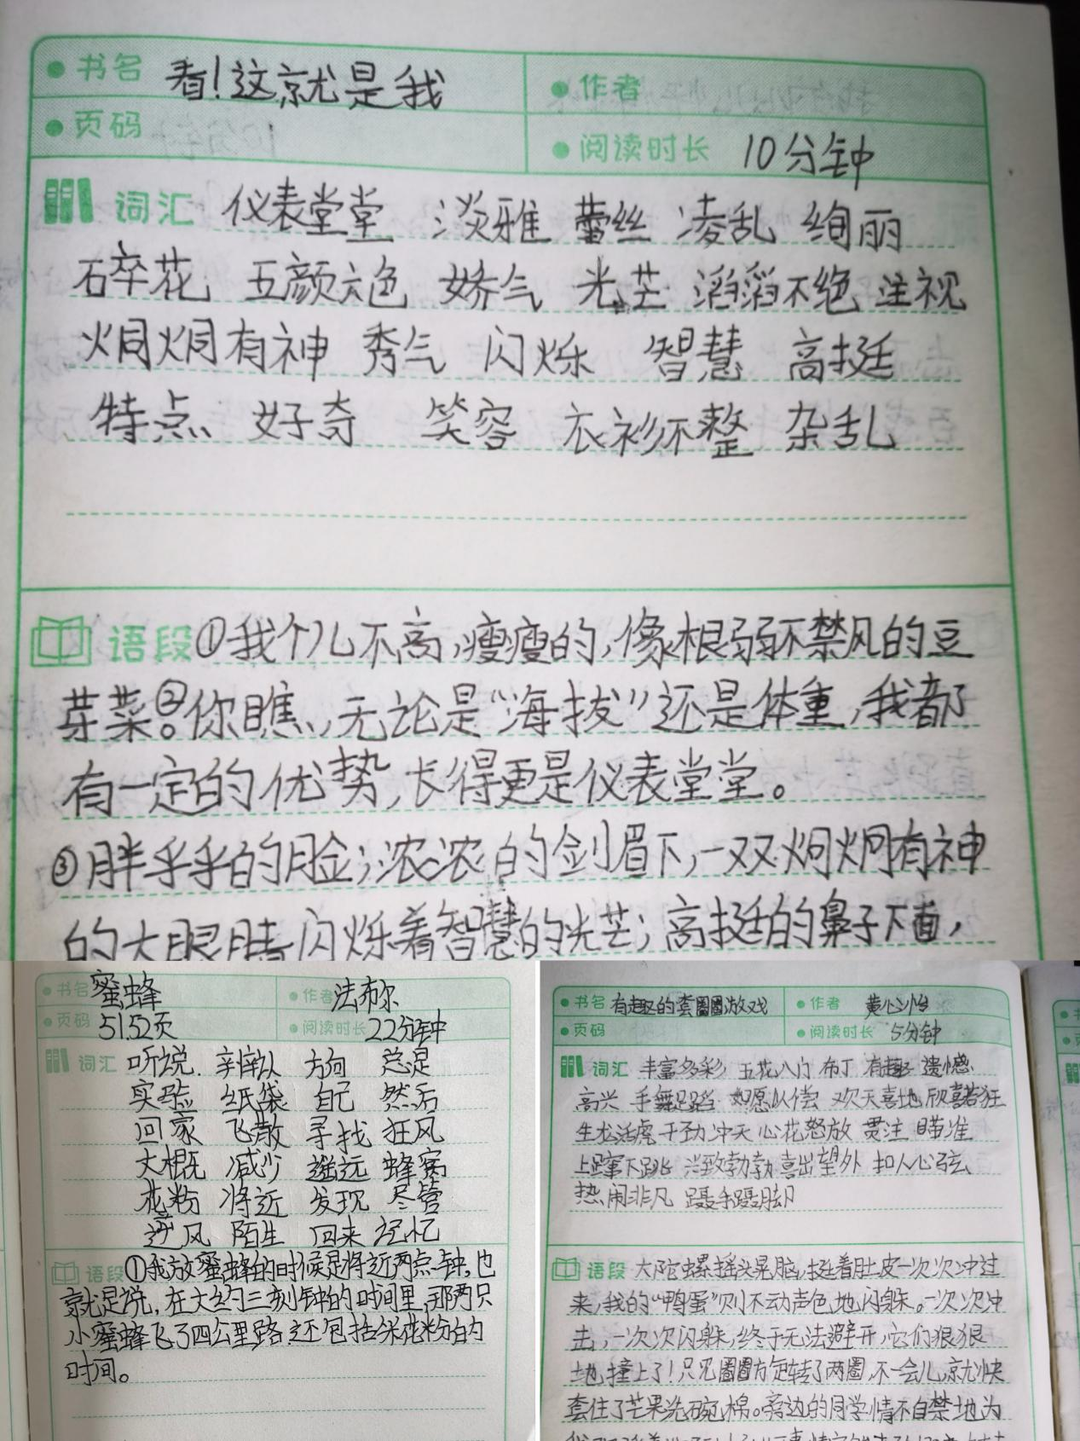 书名 看！这就是我
作者
页码
阅读时长 10分钟
词汇 仪表堂堂 淡雅 蕾丝 凌乱 绚丽
碎花 五颜六色 娇气 光芒 滔滔不绝 注视
炯炯有神 秀气 闪烁 智慧 高挺
特点 好奇 笑容 衣衫不整 杂乱
语段 ①我个儿不高，瘦瘦的，像根弱不禁风的豆
芽菜。②你瞧，无论是“海拔”还是体重，我都
有一定的优势，长得更是仪表堂堂。
③胖乎乎的脸；浓浓的剑眉下，一双炯炯有神
的大眼睛闪烁着智慧的光芒；高挺的鼻子下面，
书名 蜜蜂
作者 法布尔
页码 51.52页
阅读时长 22分钟
词汇 听说 辨认 方向 总是
实验 纸袋 自己 然后
回家 飞散 寻找 狂风
大概 减少 遥远 蜂窝
花粉 将近 发现 尽管
逆风 陌生 回来 记忆
语段 ①我放蜜蜂的时候是将近两点钟，也
就是说，在大约三刻钟的时间里，那两只
小蜜蜂飞了四公里路，这还包括采花粉的
时间。
书名 有趣的套圈圈游戏
作者 黄心怡
页码
阅读时长 5分钟
词汇 丰富多彩 五花八门 布丁 有趣 遗憾
高兴 手舞足蹈 如愿以偿 欢天喜地 欣喜若狂
生龙活虎 干劲冲天 心花怒放 贯注 瞄准
上蹿下跳 兴致勃勃 喜出望外 扣人心弦
热闹非凡 蹑手蹑脚
语段 大陀螺摇头晃脑，挺着肚皮一次次冲过
来，我的“鸭蛋”则不动声色地闪躲。一次次冲
击，一次次闪躲，终于无法避开，它们狠狠
地撞上了！只见圈圈方旋转了两圈，不一会儿，就快
套住了芒果洗碗棉。旁边的同学情不自禁地为